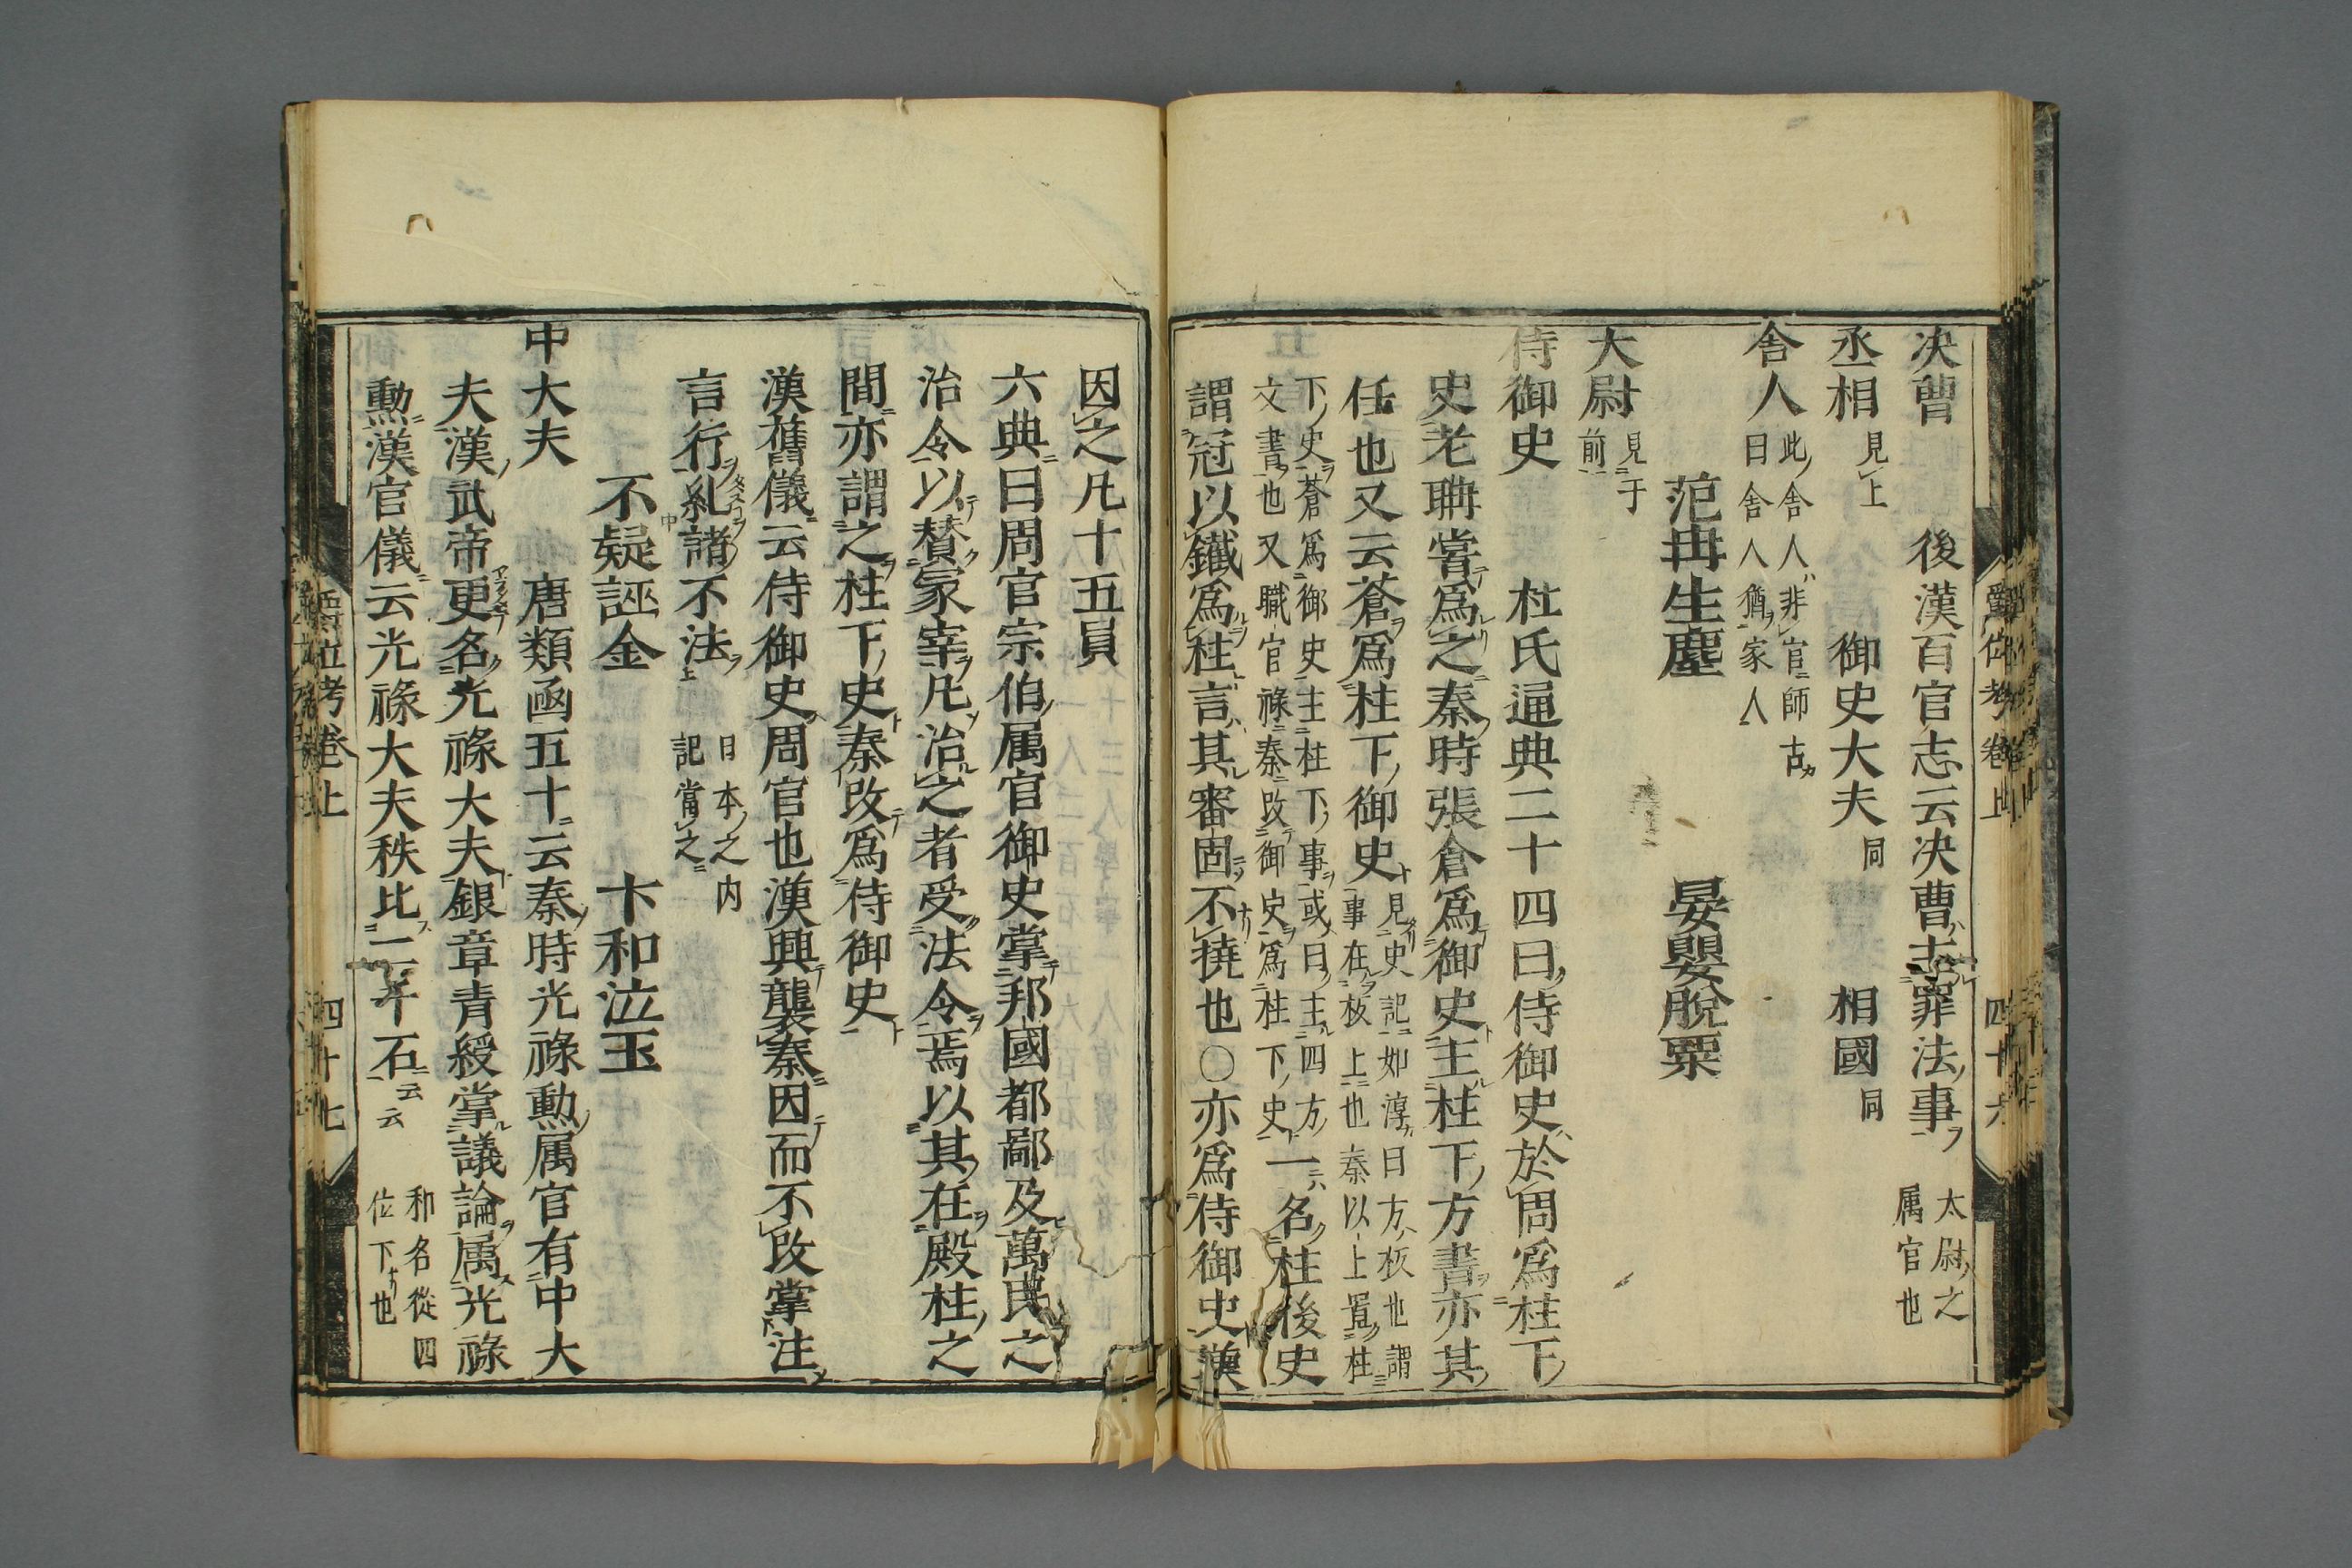 決曹　後漢百官志云決曹主罪法事　太尉之
属官也
丞相　見上　御史大夫　同　相國　同
舎人　此舎人非官師古
曰舎人猶家人
范冉生塵　晏嬰脫粟
大尉　見于
前
侍御史　杜氏通典二十四曰侍御史於周爲柱下
史老聃嘗爲之秦時張倉爲御史主柱下方書亦其
任也又云蒼爲柱下御史　見史記如淳曰方板也謂
事在板上也秦以上置柱
下史蒼爲御史主柱下事或曰主四方
文書也又職官祿秦改御史爲柱下史一名柱後史
謂冠以鐵爲柱言其審固不撓也○亦爲侍御史漢
因之凡十五員
六典曰周官宗伯属官御史掌邦國都鄙及萬民之
治令以賛冢宰凡治之者受法令焉以其在殿柱之
間亦謂之柱下史秦改爲侍御史
漢舊儀云侍御史周官也漢興襲秦因而不改掌注
言行糺諸不法　日本之内
記當之
不疑誣金　卞和泣玉
中大夫　唐類函五十云秦時光祿勳属官有中大
夫漢武帝更名光祿大夫銀章青綬掌議論属光祿
勳漢官儀云光祿大夫秩比二千石云云　和名從四
位下也
爵位考卷上　四十六
爵位考卷上　四十七